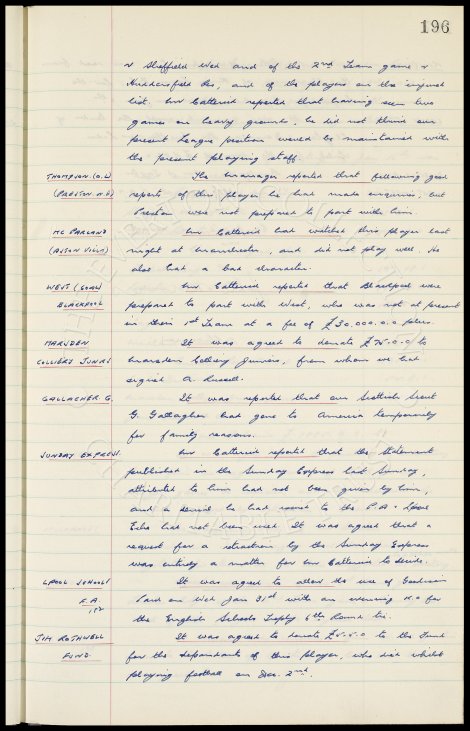 196
v Sheffield Wed and of the 2nd Team game v
Huddersfield Res, and of the players on the injured
list. Mr Catterick reported that having seen two
games on heavy grounds, he did not think our
present League position would be maintained with
the present playing staff.
THOMPSON. (O.L) The Manager reported that following good
(PRESTON N.E) reports of this player he had made enquiries, but
Preston were not prepared to part with him.
MC PARLAND Mr Catterick had watched this player last
(ASTON VILLA) night at Manchester, and did not play well. He
also had a bad character.
WEST (GOAL) Mr Catterick reported that Blackpool were
BLACKPOOL prepared to part with West, who was not at present
in their 1st Team at a fee of £30.000.0.0 plus.
MARSDEN It was agreed to donate to
COLLIERY JUNRS Marsden Colliery Juniors, from whom we had
signed A. Russell.
GALLAGHER G. It was reported that our Scottish Scout
G. Gallagher had gone to America temporarily
for family reasons.
SUNDAY EXPRESS. Mr Catterick reported that the statement
published in the Sunday Express last Sunday,
attributed to him had not been given by him,
and a denial he had issued to the P.A. & Lpool
Echo had not been used It was agreed that a
request for a retraction by the Sunday Express
was entirely a matter for Mr Catterick to decide.
LPOOL SCHOOLS It was agreed to allow the use of Goodison
F.A. Park on Wed Jan 31st with an evening K.O for
the English Schools Trophy 6th Round tie.
JIM ROTHWELL It was agreed to donate to the Fund
FUND. for the dependants of this player, who died whilst
playing football on Dec. 2nd.